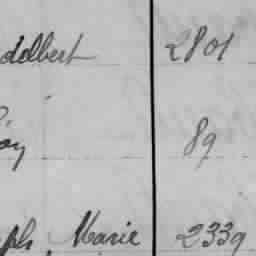 dolbert 2801
89
ph Marie 2339